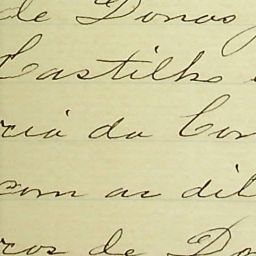 de Donas
Castilho
cia da Com
com as dil
ros de Do